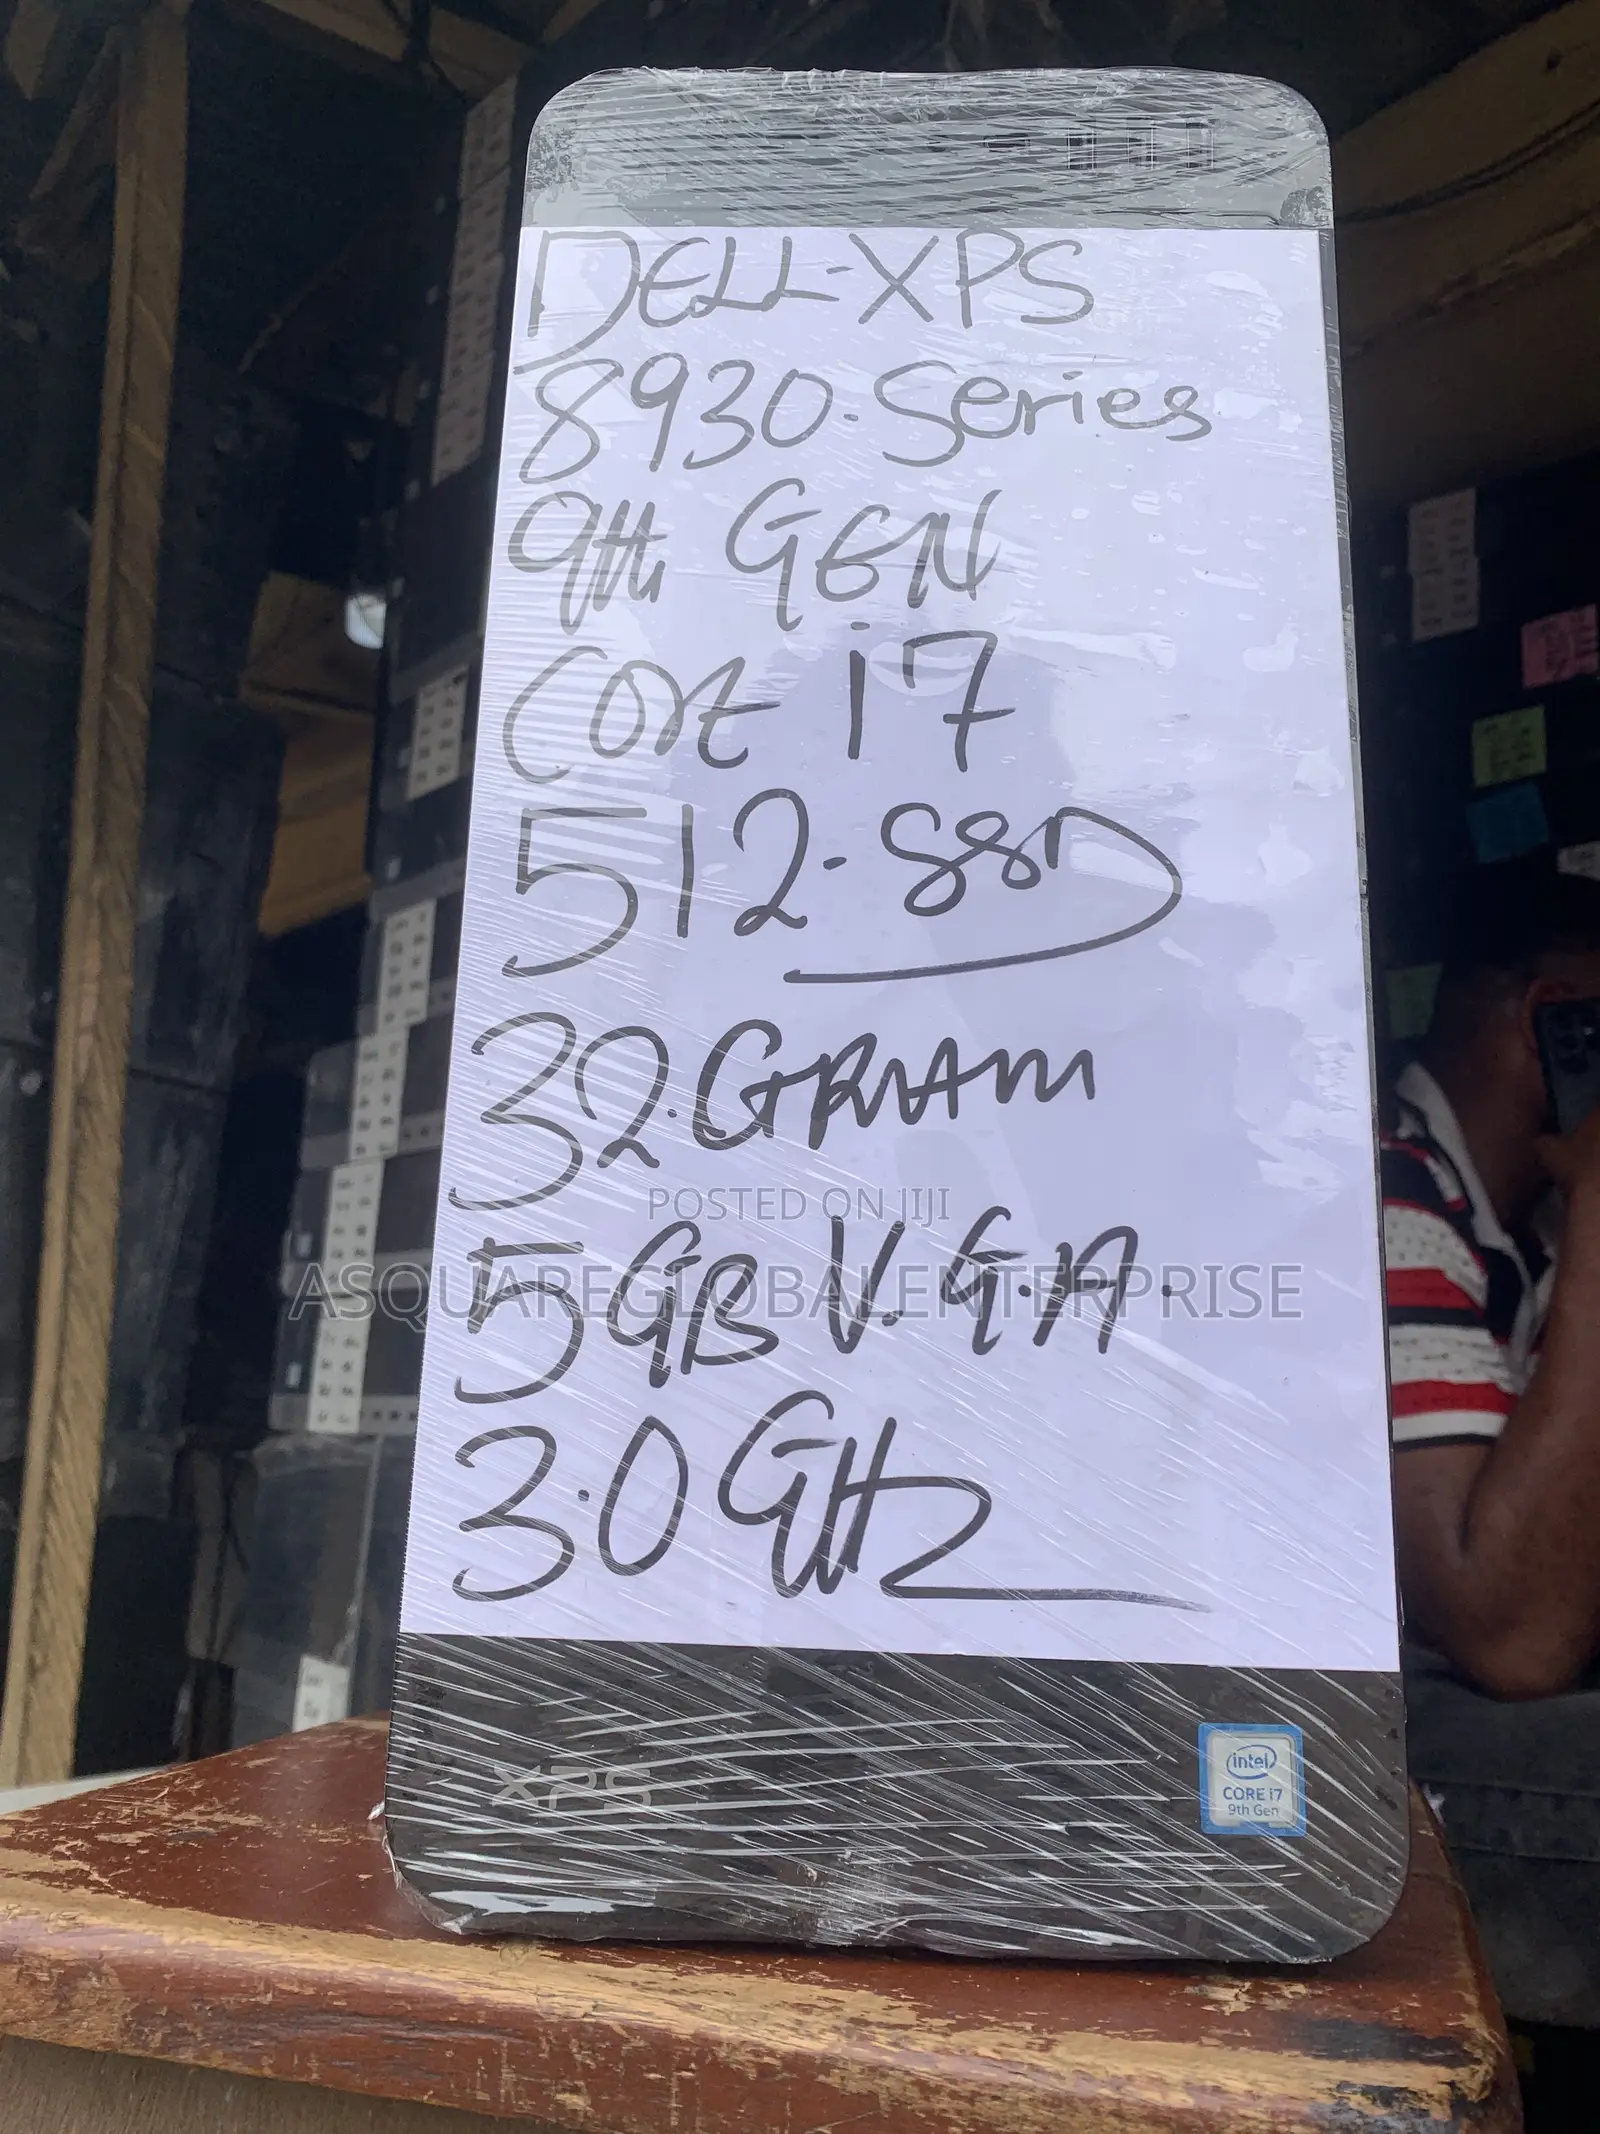 DELL-XPS
8930.Series
9th GEN
CORE i7
512.SSD
32.GRAM
POSTED ON JIJI
5GB V.G.A.
ASQUAREGLOBALENTERPRISE
3.0GHz
XPS
intel
CORE i7
9th Gen